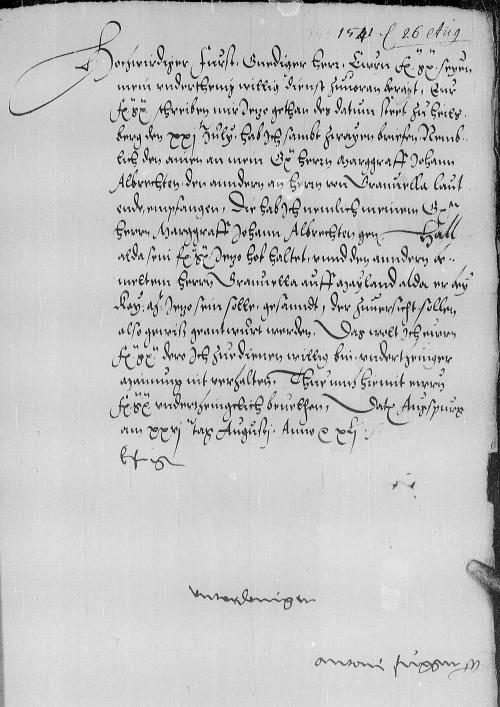 1541 26 Aug
Hochwirdiger Furst. Gnediger herr. Euern F G seyen
mein underthenig willig dienst zuuoran berayt. Eur
F G schreiben mir Jezo gethan des datum steet zu heils
berg den xxj July. hab ich sambt zwayen briefen, Nemb
lich den ainen an mein G herrn Marggraff Johann
Albrechten. den anndern an herrn von Granuella laut
ende, empfangen, Die hab ich nemlich meinem G
herrn Marggraff Johann Albrechten gen Hall
alda sein F G Jezo hof haltet, unnd den anndern
melten herrn Granuella auff Mayland alda er bey
Kay. Mt. Jezo sein solle. gesanndt, der zuuersicht sollen
also gewiß geantwurt werden. Das wolt ich eurn
F G. dero ich zu dienen willig bin. undertheniger
maynung nit verhalten. Thue mich hiemit eurn
F G underthenigclich beuelhen, Dat Augspurg
am xxvj tag Augustj. Anno xxlj.
E F G
undertheniger
Antoni Fugger